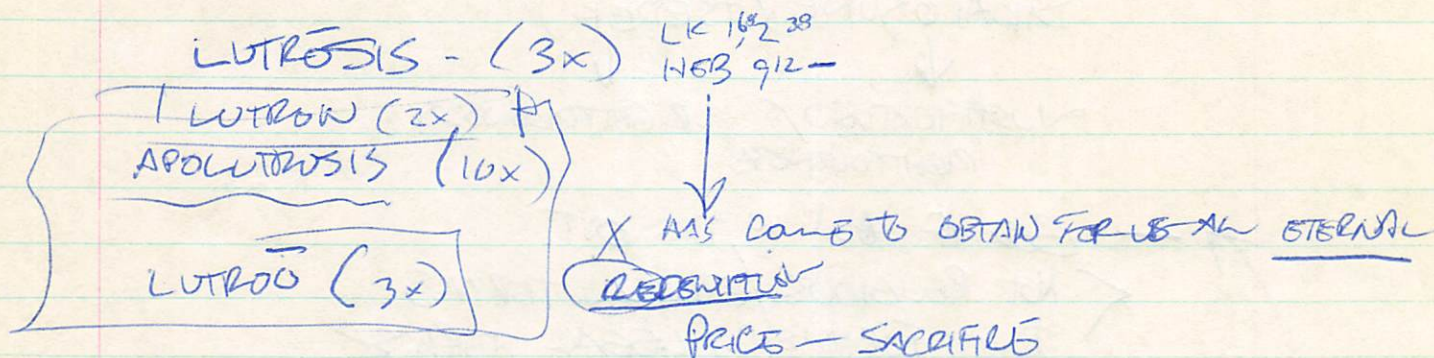 LUTRŌSIS - (3x) LK 168, 2 38
HEB 912 –
LUTRON (2x)
APOLUTROSIS (10x)
LUTROŌ (3x)
X HAS COME TO OBTAIN FOR US AN ETERNAL
REDEMPTION
PRICE — SACRIFICE